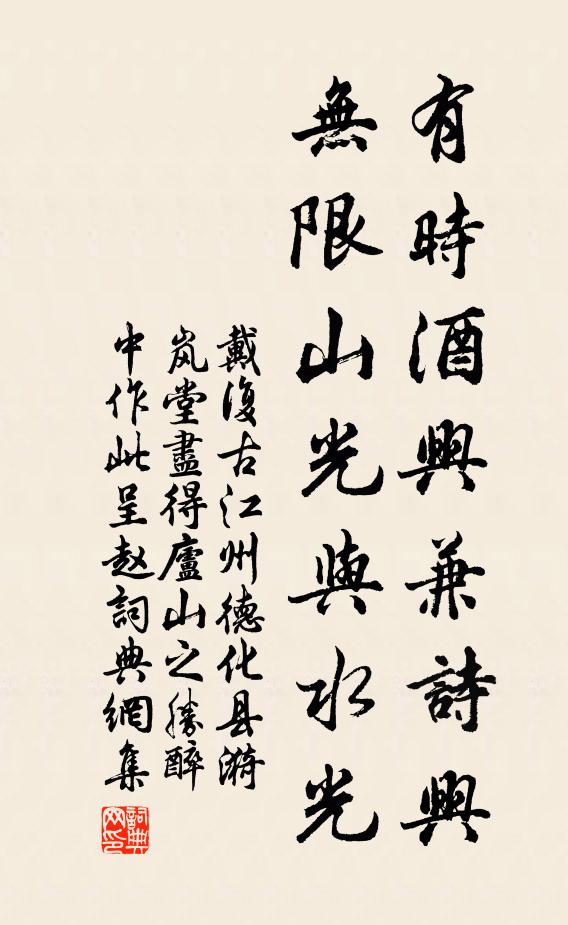 有時酒興兼詩興
無限山光與水光
戴復古江州德化县漪
岚堂盡得廬山之勝醉
中作此呈赵詞典網集
詞典网印